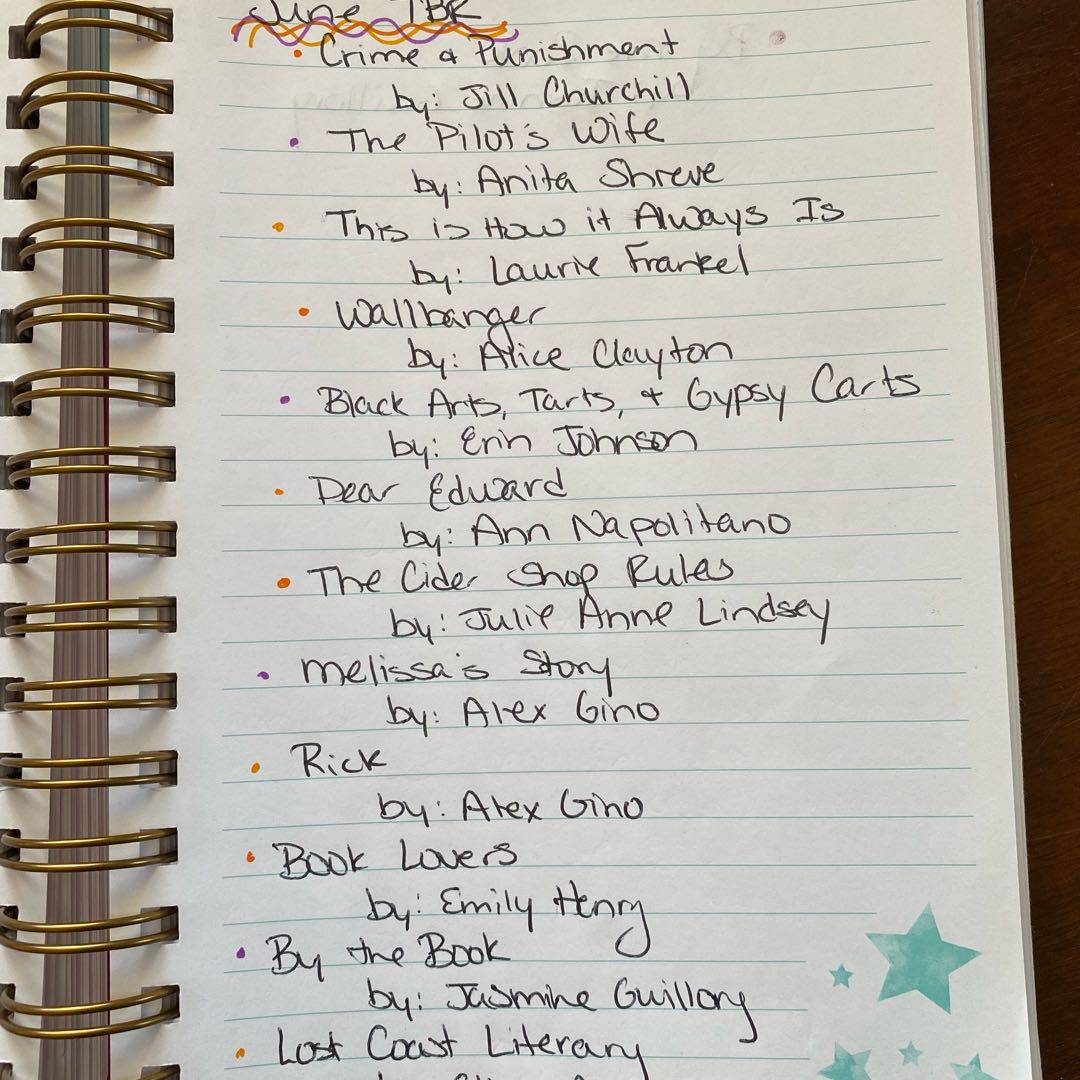 June TBR
• Crime & Punishment
by: Jill Churchill
• The Pilot's Wife
by: Anita Shreve
• This is How it Always Is
by: Laurie Frankel
• Wallbanger
by: Alice Clayton
• Black Arts, Tarts, & Gypsy Carts
by: Erin Johnson
• Dear Edward
by: Ann Napolitano
• The Cider Shop Rules
by: Julie Anne Lindsey
• Melissa's Story
by: Alex Gino
• Rick
by: Alex Gino
• Book Lovers
by: Emily Henry
• By the Book
by: Jasmine Guillory
• Lost Coast Literary